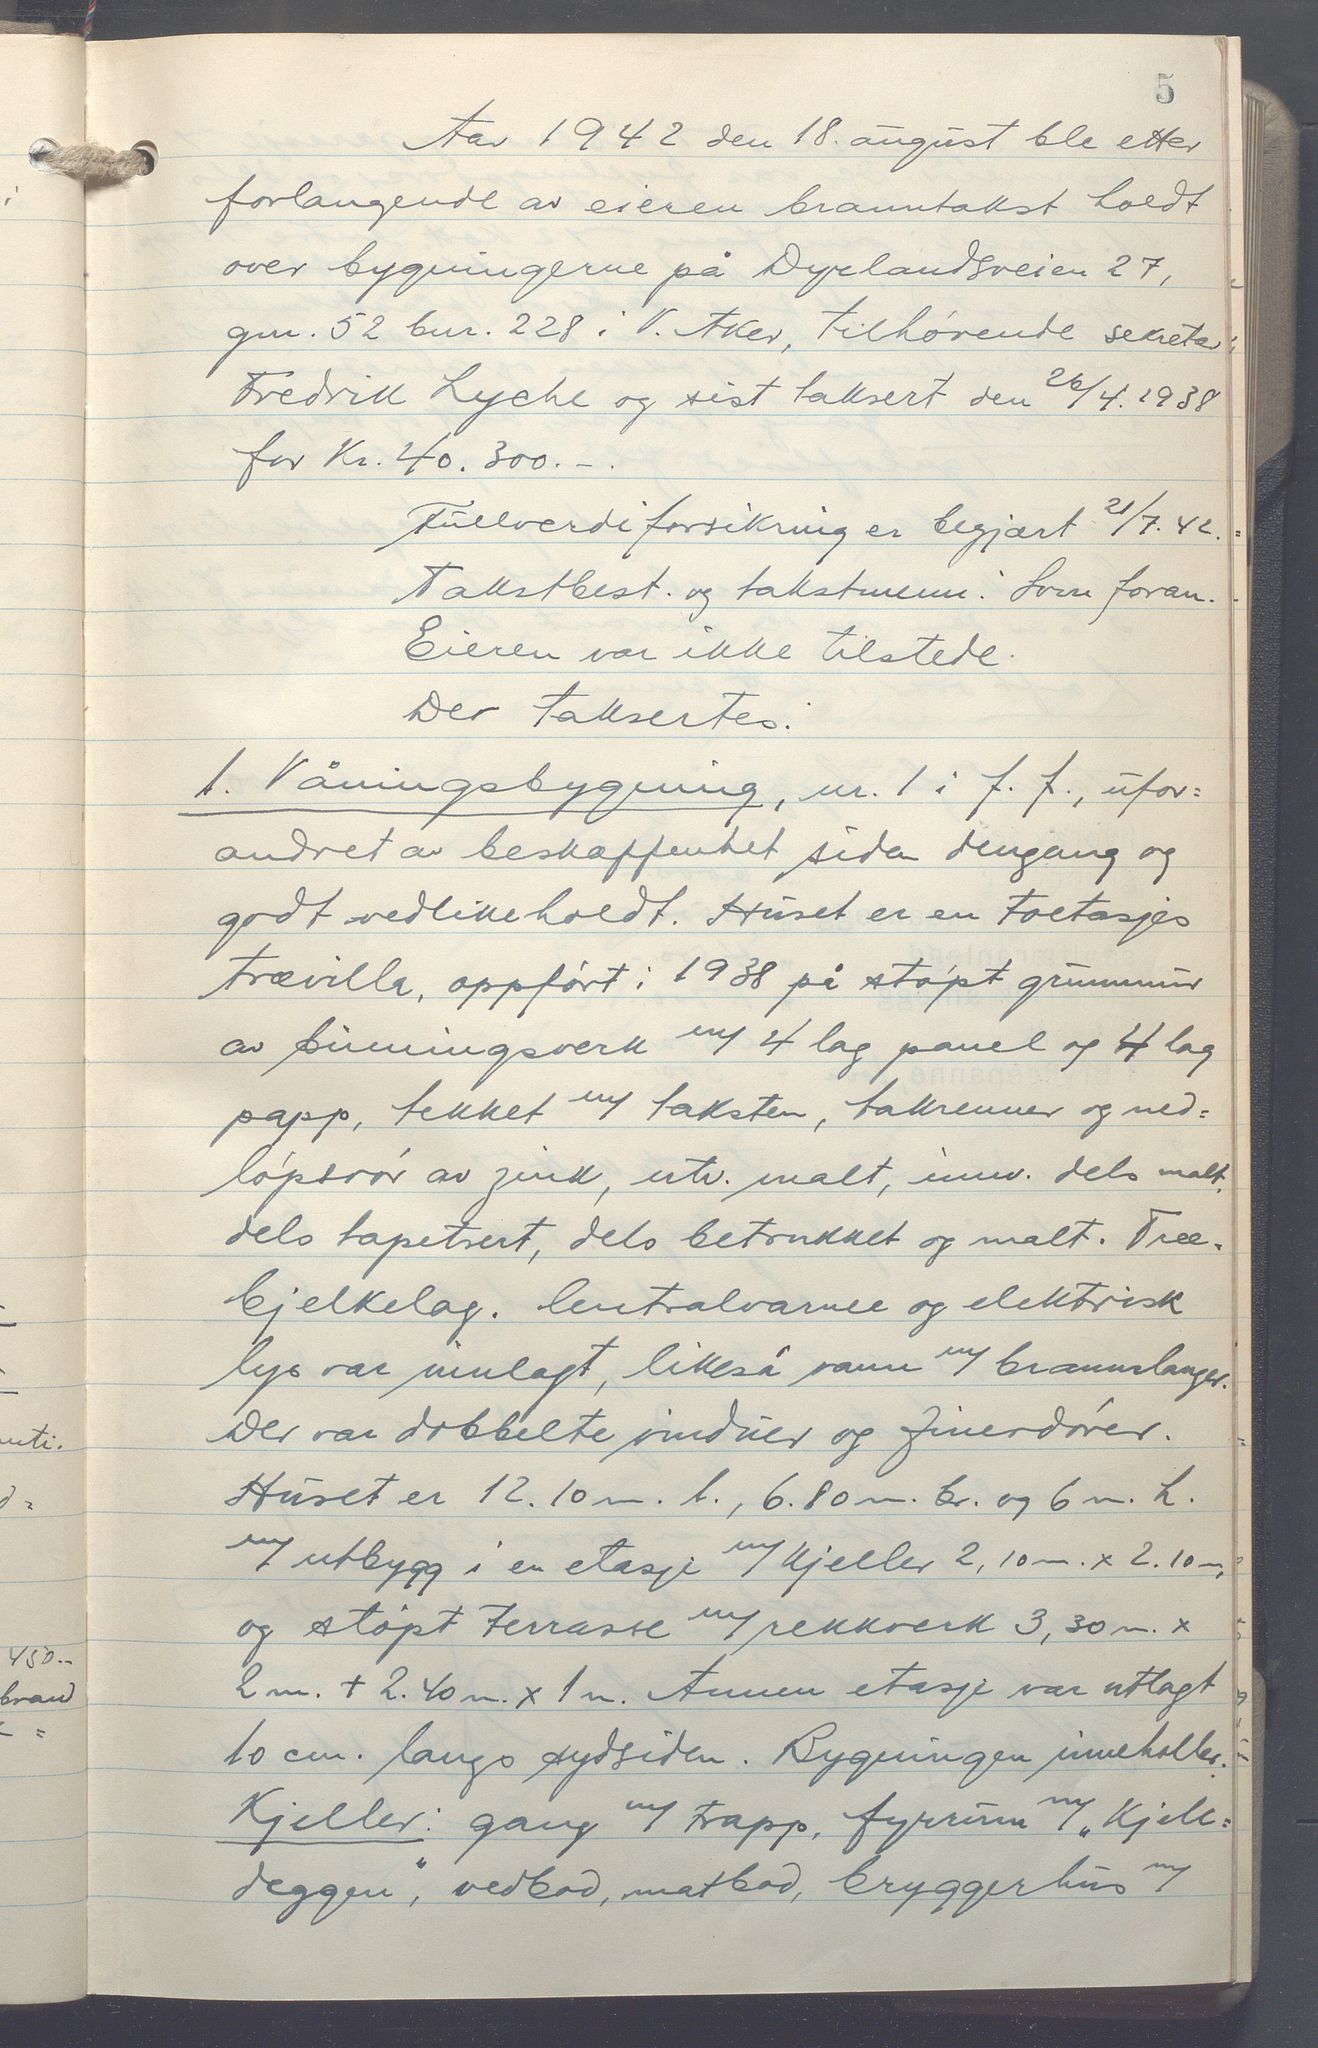 5
Aar 1942 den 18. august ble etter
forlangende av eieren branntakst holdt
over bygningerne på Dyrlandsveien 27,
gnr. 52 bnr. 228 i V. Aker, tilhørende sekretær
Fredrik Lyche og sist taksert den 26/4. 1938
for Kr. 40.300.-.
Fullverdiforsikring er begjært 21/7. 42.
Takstbest. og takstmenn: Som foran.
Eieren var ikke tilstede.
Der taksertes:
1. Våningsbygning, nr. 1 i f. f., ufor=
andret av beskaffenhet siden dengang og
godt vedlikeholdt. Huset er en toetasjes
trævilla, oppført i 1938 på støpt grunnmur
av binningsverk m/ 4 lag panel og 4 lag
papp, tekket m/ taksten, takrenner og ned=
løpsrør av zink, utv. malt, innv. dels malt,
dels tapetsert, dels betrukket og malt. Træ=
bjelkelag. Centralvarme og elektrisk
lys var innlagt, likeså vann m/ brannslanger.
Der var dobbelte vinduer og finerdører.
Huset er 12.10 m. l., 6.80 m. br. og 6 m. h.
m/ utbygg i en etasje m/ kjeller 2,10 m. x 2.10 m,
og støpt terrasse m/ rekkverk 3,30 m. x
2 m. + 2.40 m. x 1 m. Annen etasje var utlagt
10 cm. langs sydsiden. Bygningen inneholler:
Kjeller: gang m/ trapp, fyrrum m/ „Kjell=
deggen", vedbod, matbod, bryggerhus m/
450.-